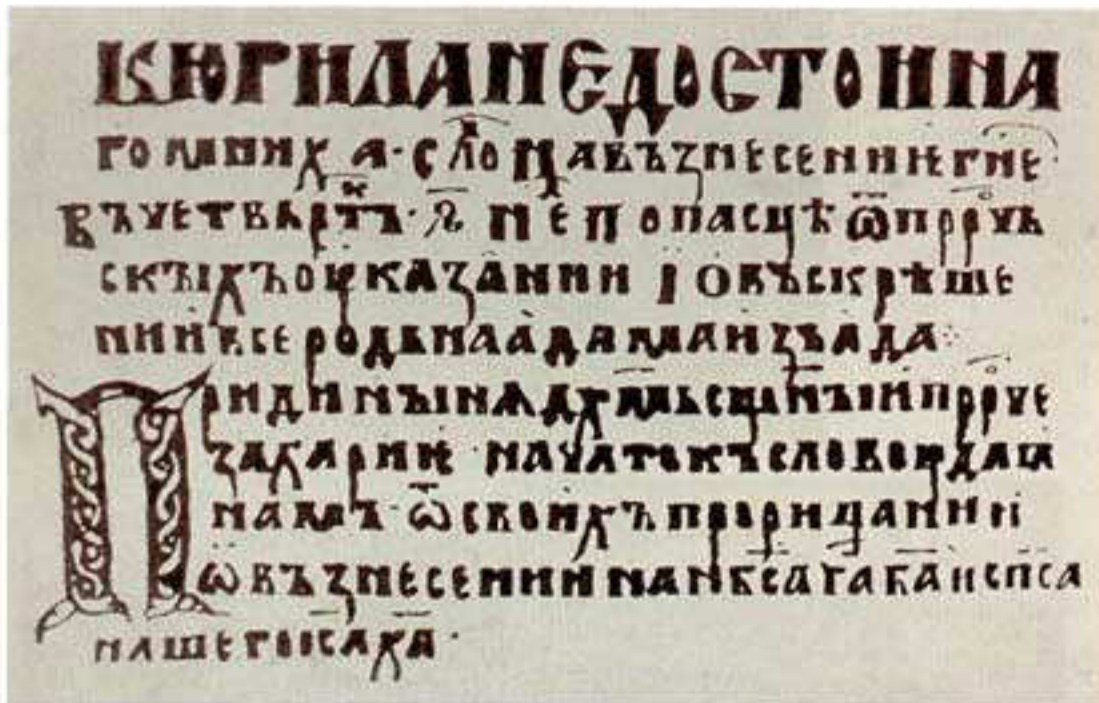 КЮРИЛАНЕДОСТОИНА
гомниха·слонавъзнесениѥгне·
въчетвьрт·ꙗ҃·неꙇпопасцѣѿпррчь
скъıхъоуказании ꙇовъскрѣше
ниивсеродьнаадамаизъада⁘
Придинъıнѧдхмьсщнъıипррче
захариѥ·начатокъсловоудаꙗ
намъ·ѿсвоихъпрорицании
ѡвъзнесениинанбсагабаиспса
нашегоісаха·